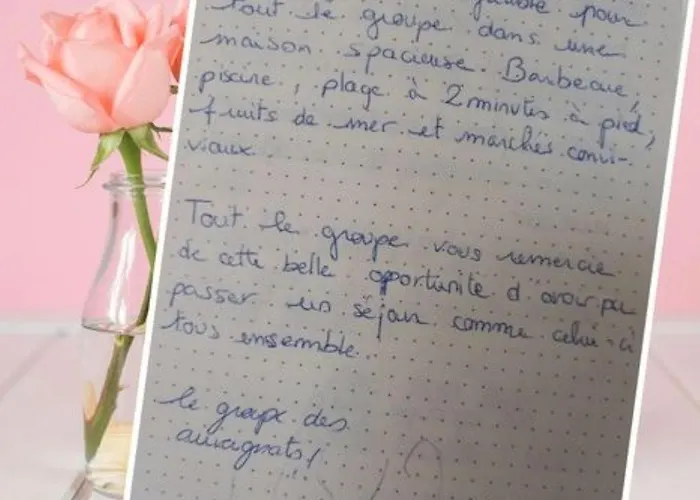 pour
tout le groupe dans une
maison spacieuse. Barbecue,
piscine, plage à 2 minutes à pied,
fruits de mer et marchés convi-
viaux.
Tout le groupe vous remercie
de cette belle opportunité d'avoir pu
passer un séjour comme celui-ci
tous ensemble.
le groupe des
auvergnats!